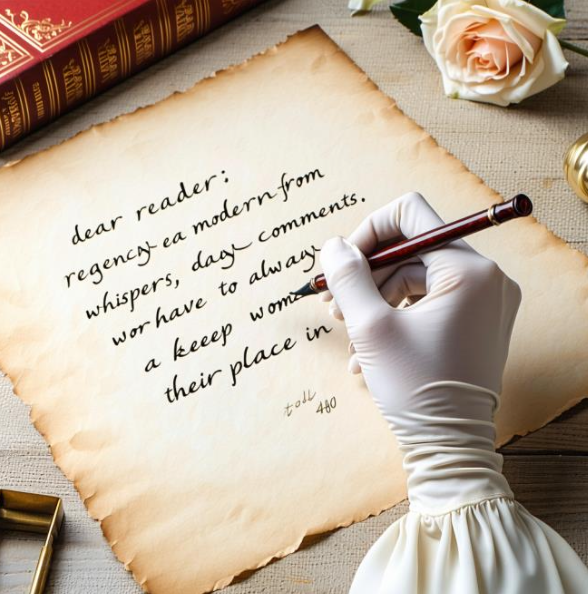 dear reader:
regency ea modern from
whispers, dagy comments.
wor have to alway
a keeep wom
their place in
480